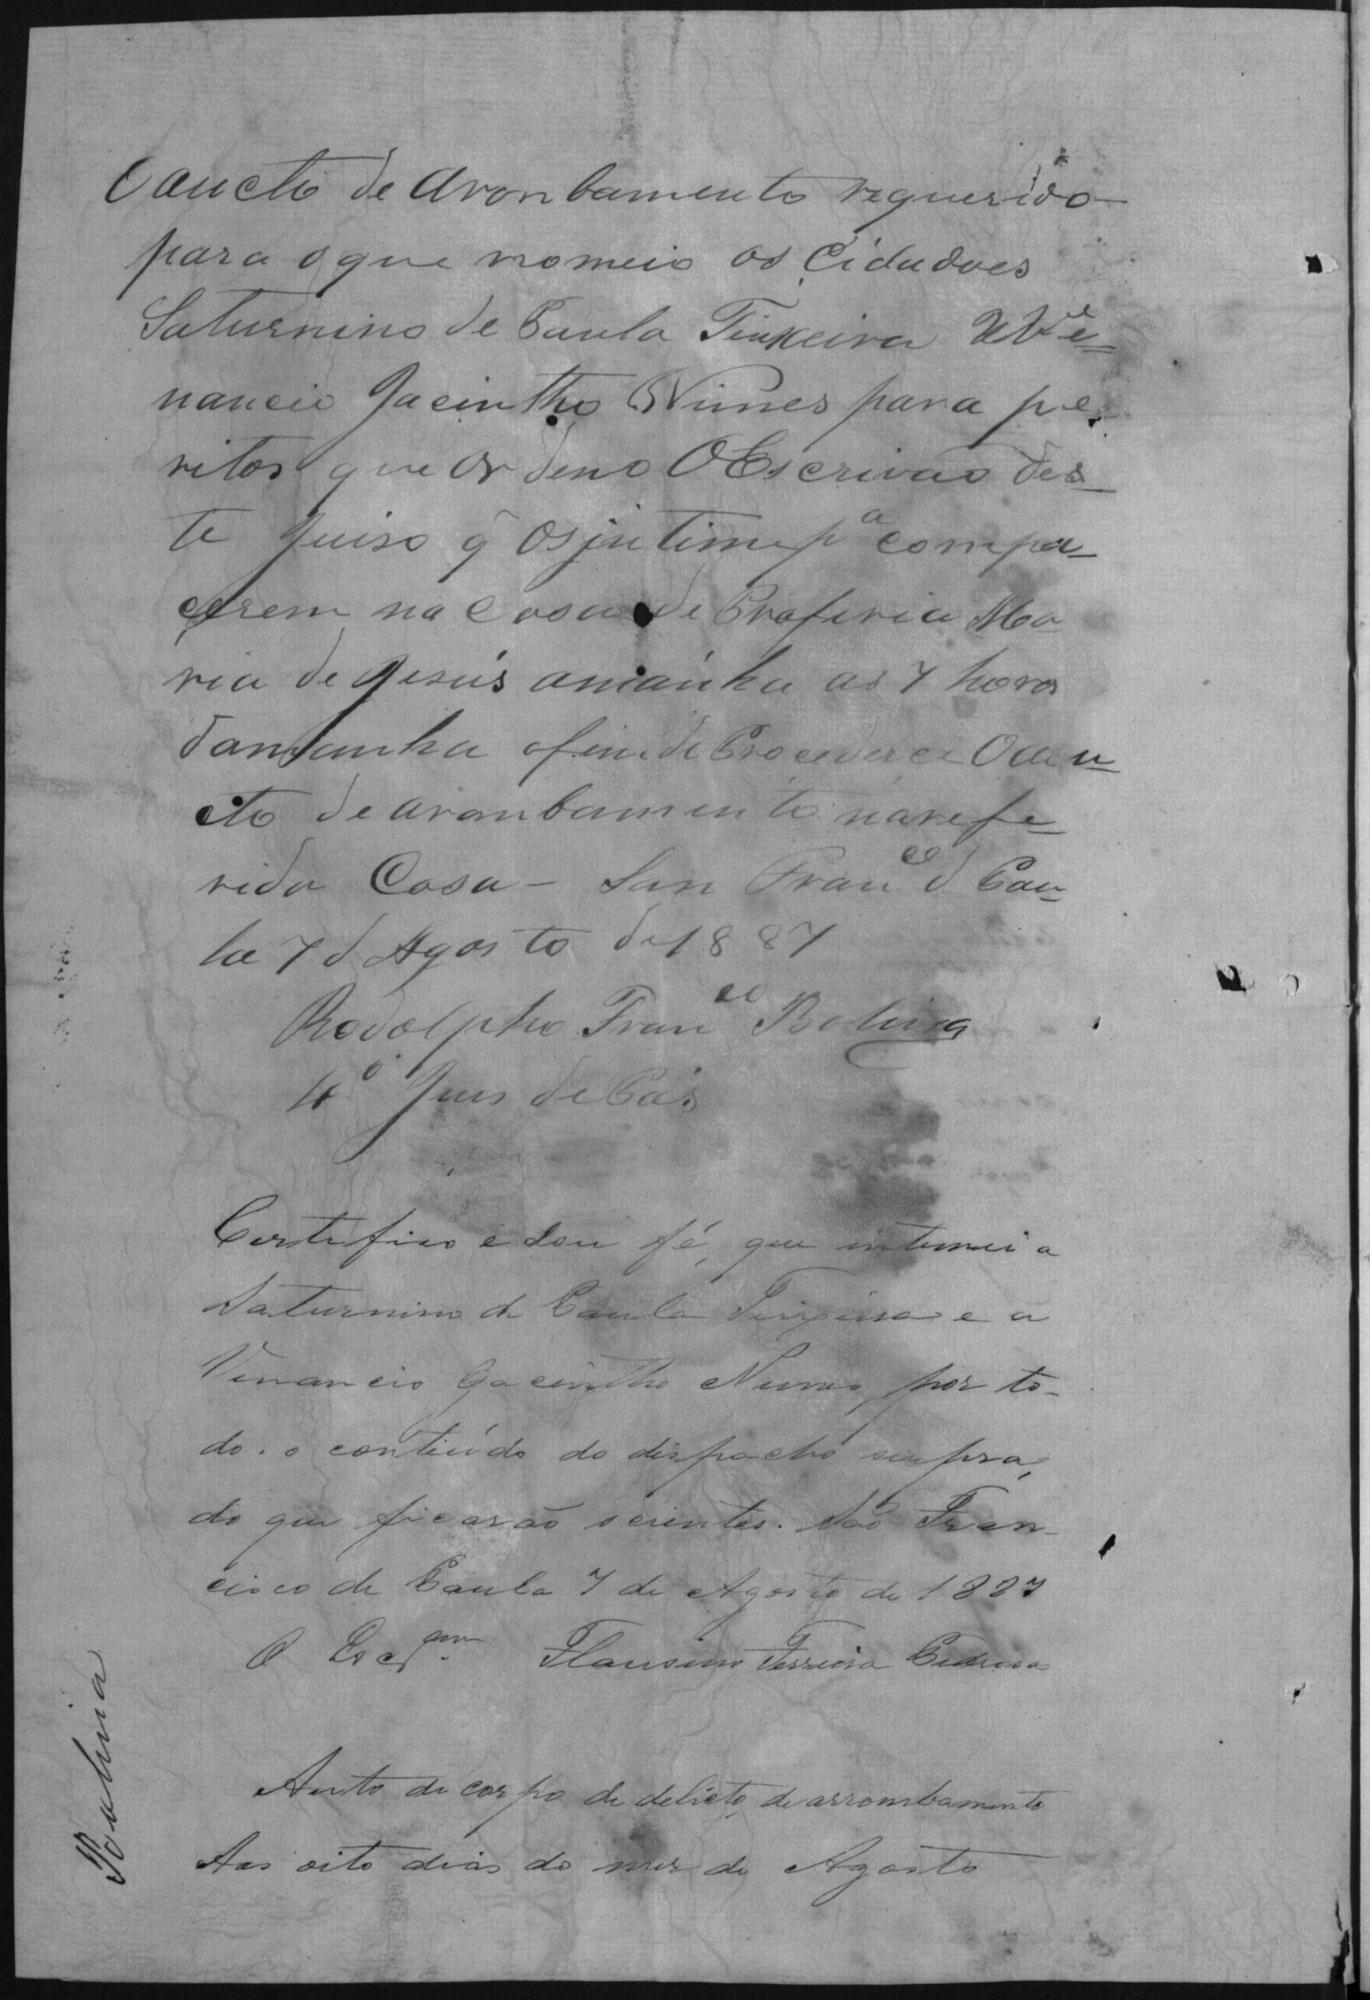 O aucto de aronbamento requerido
para o que nomeio os Cidadoes
Saturnino de Paula Teixeira e Ve-
nancio Jacintho Nunes para pe-
ritos que ordeno O Escrivão des-
te Juiso q̃ os intime pª compa-
cerem na Casa de Profiria Ma
ria de Jesús amánha as 7 horas
damanha afim de Procederce O au-
cto de aronbamento na refe-
rida Casa - San Franco d Pau-
la 7 d Agosto de 1887
Rodolpho Franco
4º Juis de Pás
Certifico e dou fé, que intimei a
Saturnino de Paula Teixeira e a
Venancio Jacintho Nunes, por to-
do o contiúdo do despacho supra,
do que ficarão scientes. São Fran-
cisco de Paula 7 de Agosto de 1887
O Escram. Flausino Ferreira Pedrosa
Auto de corpo de delicto de arrombamento
Aos oito dias do mez de Agosto